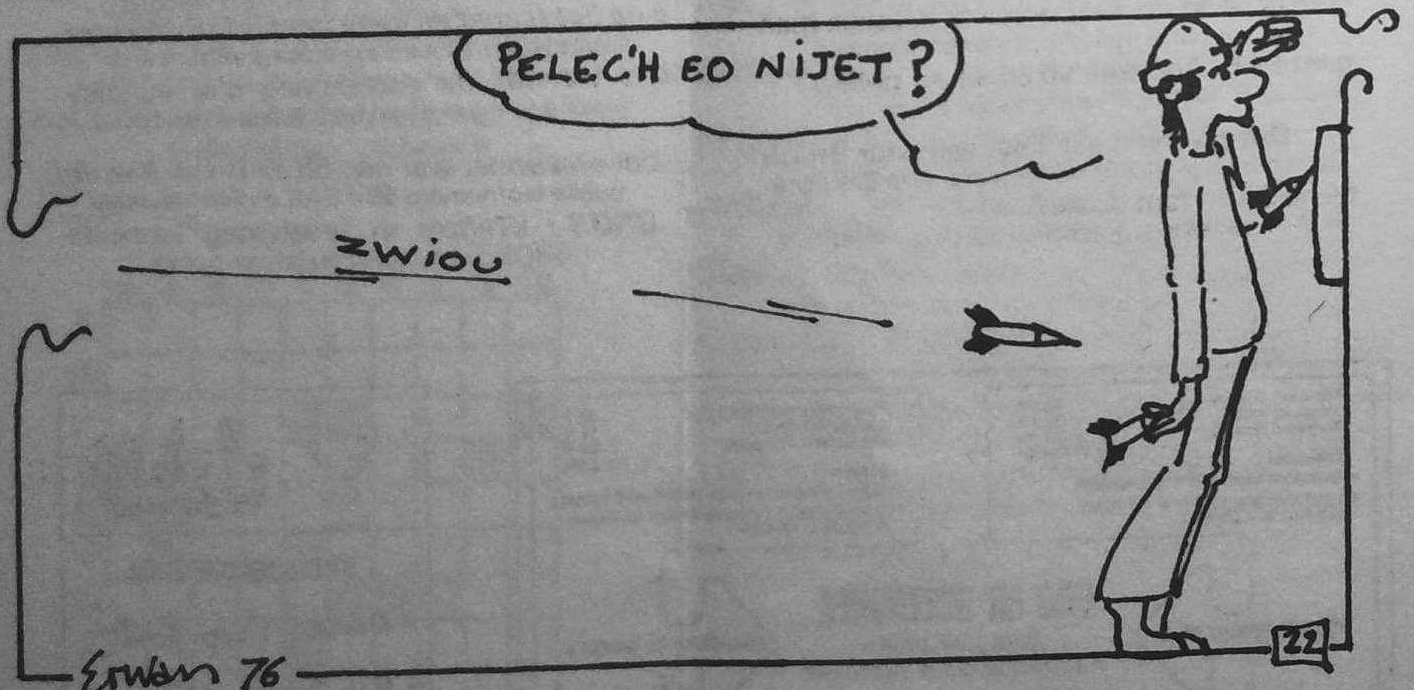 PELEC'H EO NIJET ?
ZWIOU
Erwan 76
22